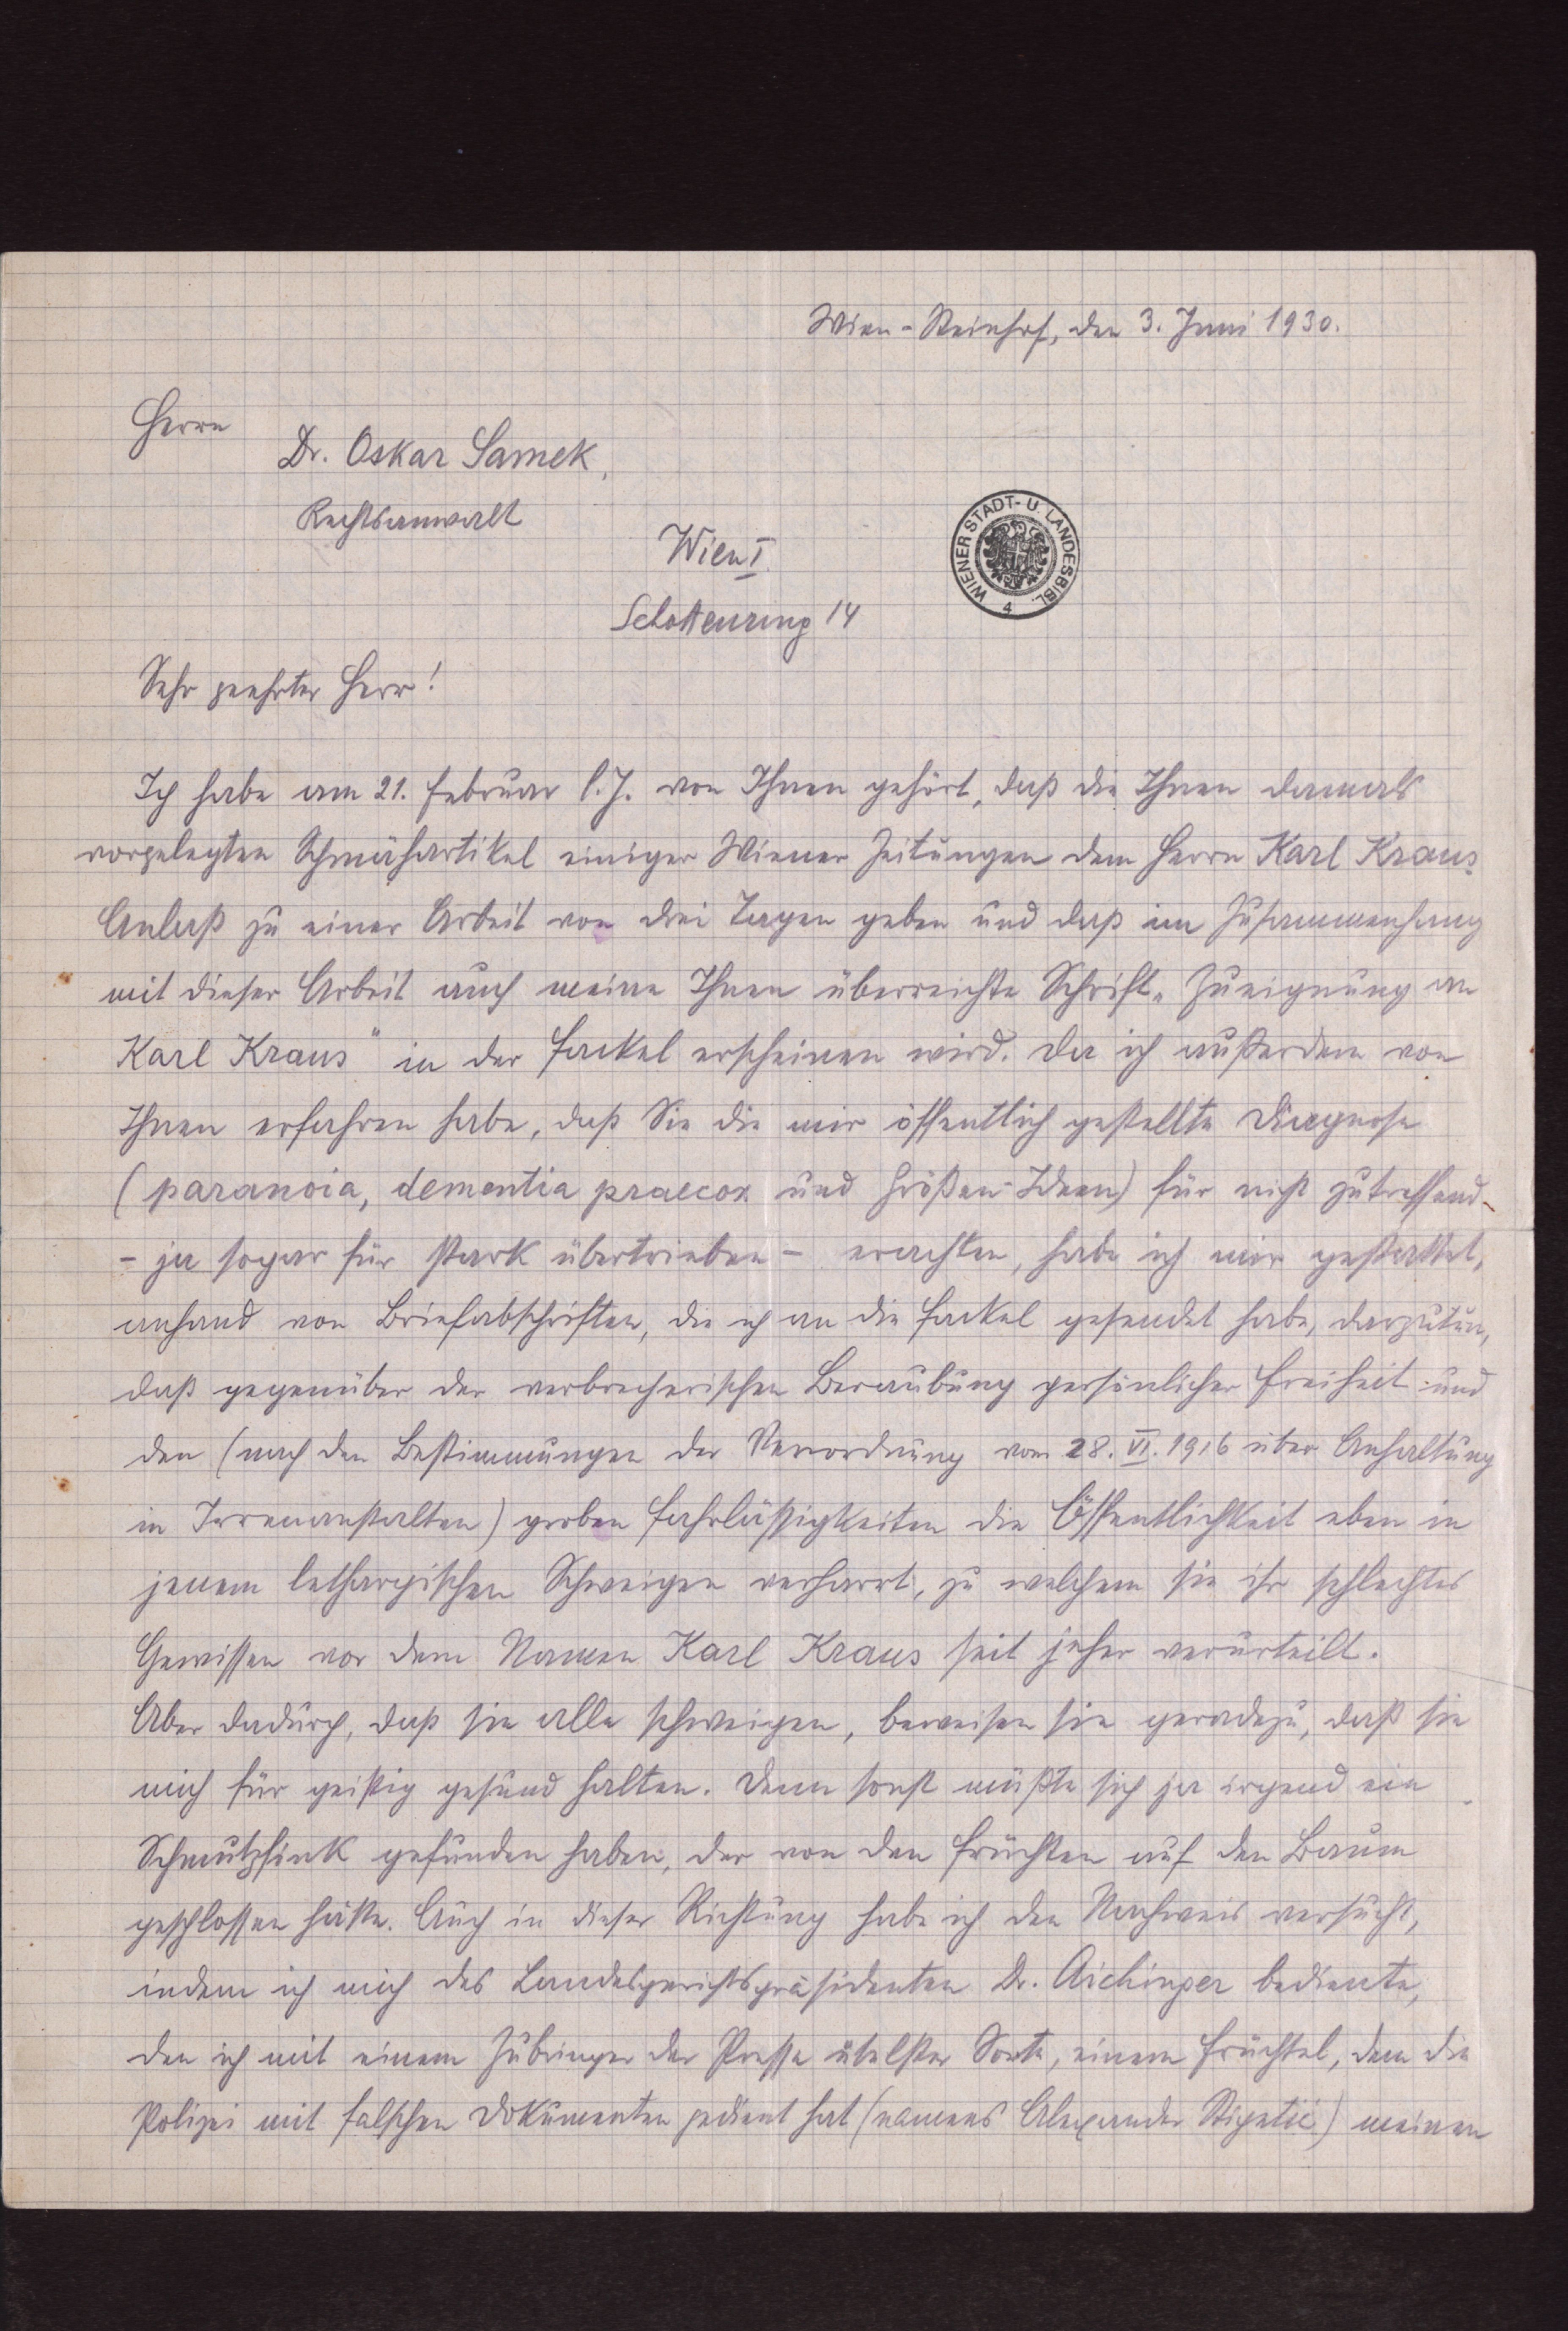 Wien-Steinhof, den 3. Juni 1930.
Herrn
Dr. Oskar Samek,
Rechtsanwalt
Wien I.
Schottenring 14
WIENER STADT- U. LANDESBIBL.
4
Sehr geehrter Herr!
Ich habe am 21. Februar l. J. von Ihnen gehört, daß die Ihnen damals
vorgelegten Schmähartikel einiger Wiener Zeitungen dem Herrn Karl Kraus
Anlaß zu einer Arbeit von drei Tagen geben und daß im Zusammenhang
mit dieser Arbeit auch meine Ihnen überreichte Schrift „Zueignung an
Karl Kraus" in der Fackel erscheinen wird. Da ich außerdem von
Ihnen erfahren habe, daß Sie die mir öffentlich gestellte Diagnose
(paranoia, dementia praecox und Größen-Ideen) für nicht zutreffend
- ja sogar für stark übertrieben - erachten, habe ich mir gestattet,
anhand von Briefabschriften, die ich an die Fackel gesendet habe, darzutun,
daß gegenüber der verbrecherischen Beraubung persönlicher Freiheit und
den (nach den Bestimmungen der Verordnung vom 28. VI. 1916 über Anhaltung
in Irrenanstalten) groben Fahrlässigkeiten die Öffentlichkeit eben in
jenem lethargischen Schweigen verharrt, zu welchem sie ihr schlechtes
Gewissen vor dem Namen Karl Kraus seit jeher verurteilt.
Aber dadurch, daß sie alle schweigen, beweisen sie geradezu, daß sie
mich für geistig gesund halten. Denn sonst müßte sich ja irgend ein
Schmutzfink gefunden haben, der von den Früchten auf den Baum
geschlossen hätte. Auch in dieser Richtung habe ich den Nachweis versucht,
indem ich mich des Landesgerichtspräsidenten Dr. Aichinger bediente,
den ich mit einem Zubringer der Presse übelster Sorte, einem Früchtel, dem die
Polizei mit falschen Dokumenten gedient hat (namens Alexander) meinen